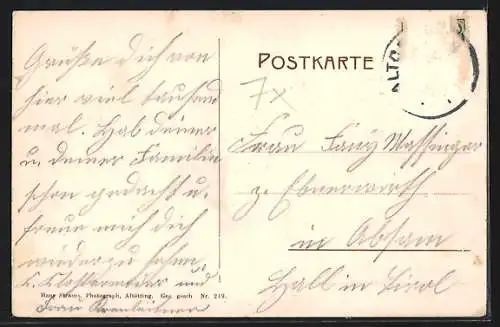 Grüße dich von
hier viel tausend
mal. Hab deiner
u. deiner Familie
schon gedacht u.
freue mich dich
wieder zu sehen.
und
Frau
Hans Strauss, Photograph, Altötting. Ges. gesch. Nr. 219.
POSTKARTE
ALTÖ
7x
Frau Fany Massinger
z. Ebnerwirth
in Absam
Hall in Tirol